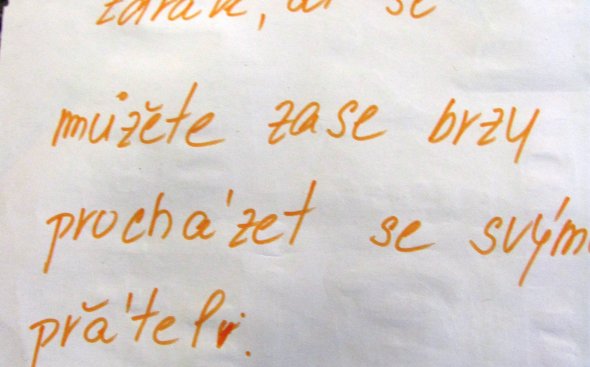 se
můžěte zase brzy
procházet se svým
přáteli.